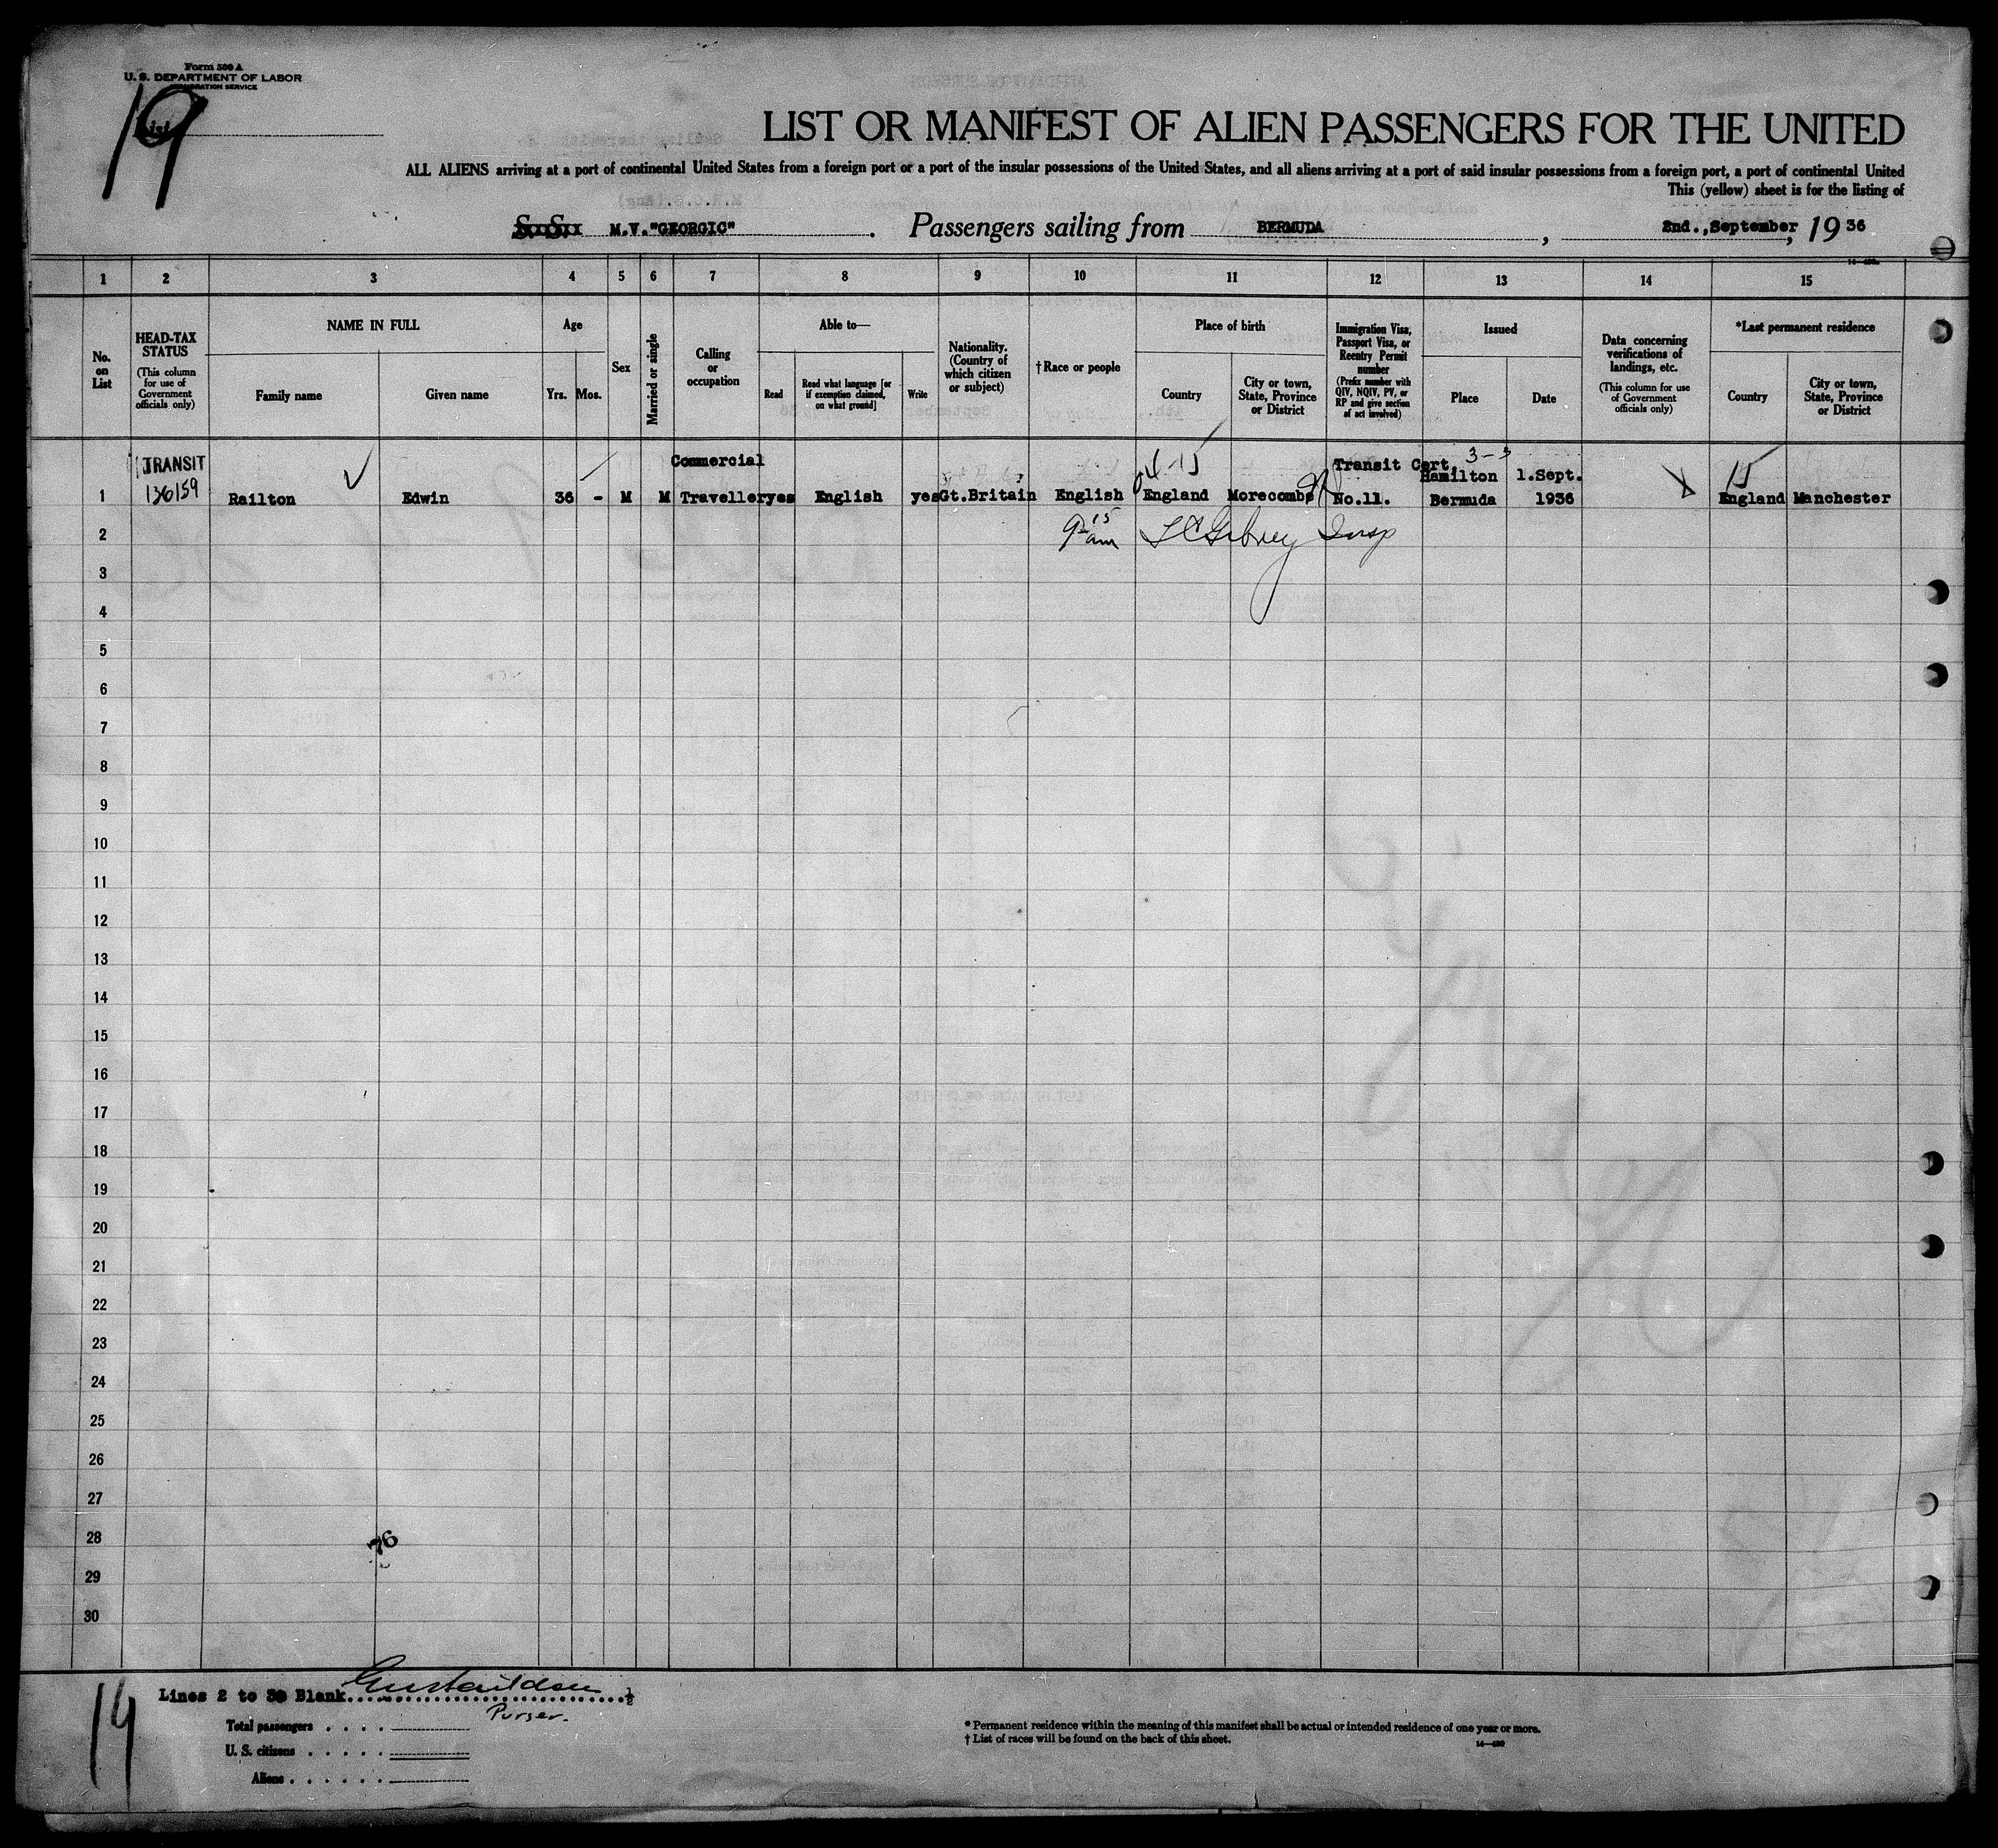 Form 500 A
U. S. DEPARTMENT OF LABOR
IMMIGRATION SERVICE
List
19
LIST OR MANIFEST OF ALIEN PASSENGERS FOR THE UNITED
ALL ALIENS arriving at a port of continental United States from a foreign port or a port of the insular possessions of the United States, and all aliens arriving at a port of said insular possessions from a foreign port, a port of continental United
This (yellow) sheet is for the listing of
S. S. M.V."GEORGIC" . Passengers sailing from BERMUDA , 2nd.,September , 19 36
1 2 3 4 5 6 7 8 9 10 11 12 13 14 15
No. on List
HEAD-TAX STATUS
(This column for use of Government officials only)
NAME IN FULL
Family name
Given name
Age
Yrs. Mos.
Sex
Married or single
Calling or occupation
Able to—
Read
Read what language [or if exemption claimed, on what ground]
Write
Nationality. (Country of which citizen or subject)
†Race or people
Place of birth
Country
City or town, State, Province or District
Immigration Visa, Passport Visa, or Reentry Permit number
(Prefix number with QIV, NQIV, PV, or RP and give section of act involved)
Issued
Place
Date
Data concerning verifications of landings, etc.
(This column for use of Government officials only)
*Last permanent residence
Country
City or town, State, Province or District
TRANSIT Commercial 15 Transit Cert. 3-3 Hamilton 1.Sept. 15
1 136159 Railton Edwin 36 - M M Traveller yes English yes Gt.Britain English England Morecombe No.11. Bermuda 1936 England Manchester
2 9 15 am Insp
3
4
5
6
7
8
9
10
11
12
13
14
15
16
17
18
19
20
21
22
23
24
25
26
27
28 76
29
30
19
Lines 2 to 30 Blank
Purser.
Total passengers
U. S. citizens
Aliens
* Permanent residence within the meaning of this manifest shall be actual or intended residence of one year or more.
† List of races will be found on the back of this sheet.
14—430